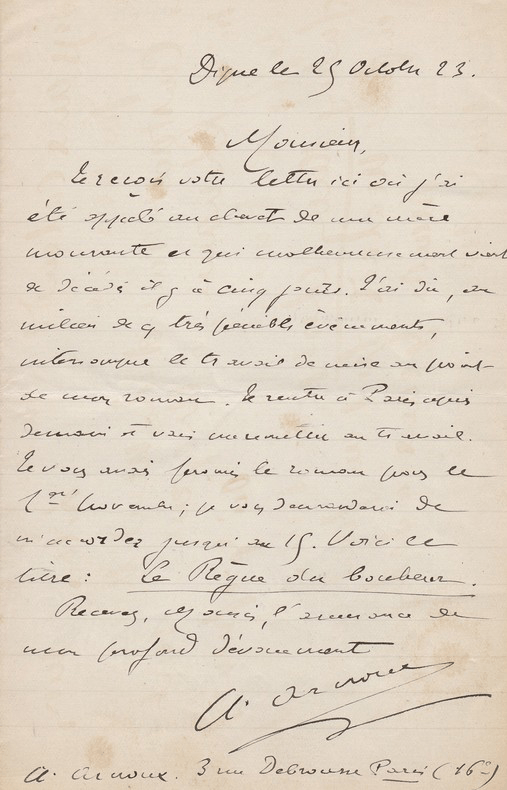 Digne le 25 Octobre 23.
Monsieur,
Je reçois votre lettre ici où j'ai
été appelé au chevet de ma mère
mourante et qui malheureusement vient
de décéder il y a cinq jours. J'ai dû, au
milieu de ces très pénibles évènements,
interrompre le travail de mise au point
de mon roman. Je rentre à Paris après
demain et vais me remettre au travail.
Je vous avais promis le roman pour le
1er novembre ; je vous demanderai de
m'accorder jusqu'au 15. Voici le
titre : Le Règne du bonheur.
Recevez, Monsieur, l'assurance de
mon profond dévouement
A. Arnoux
A. Arnoux. 3 rue Debrousse Paris (16e)